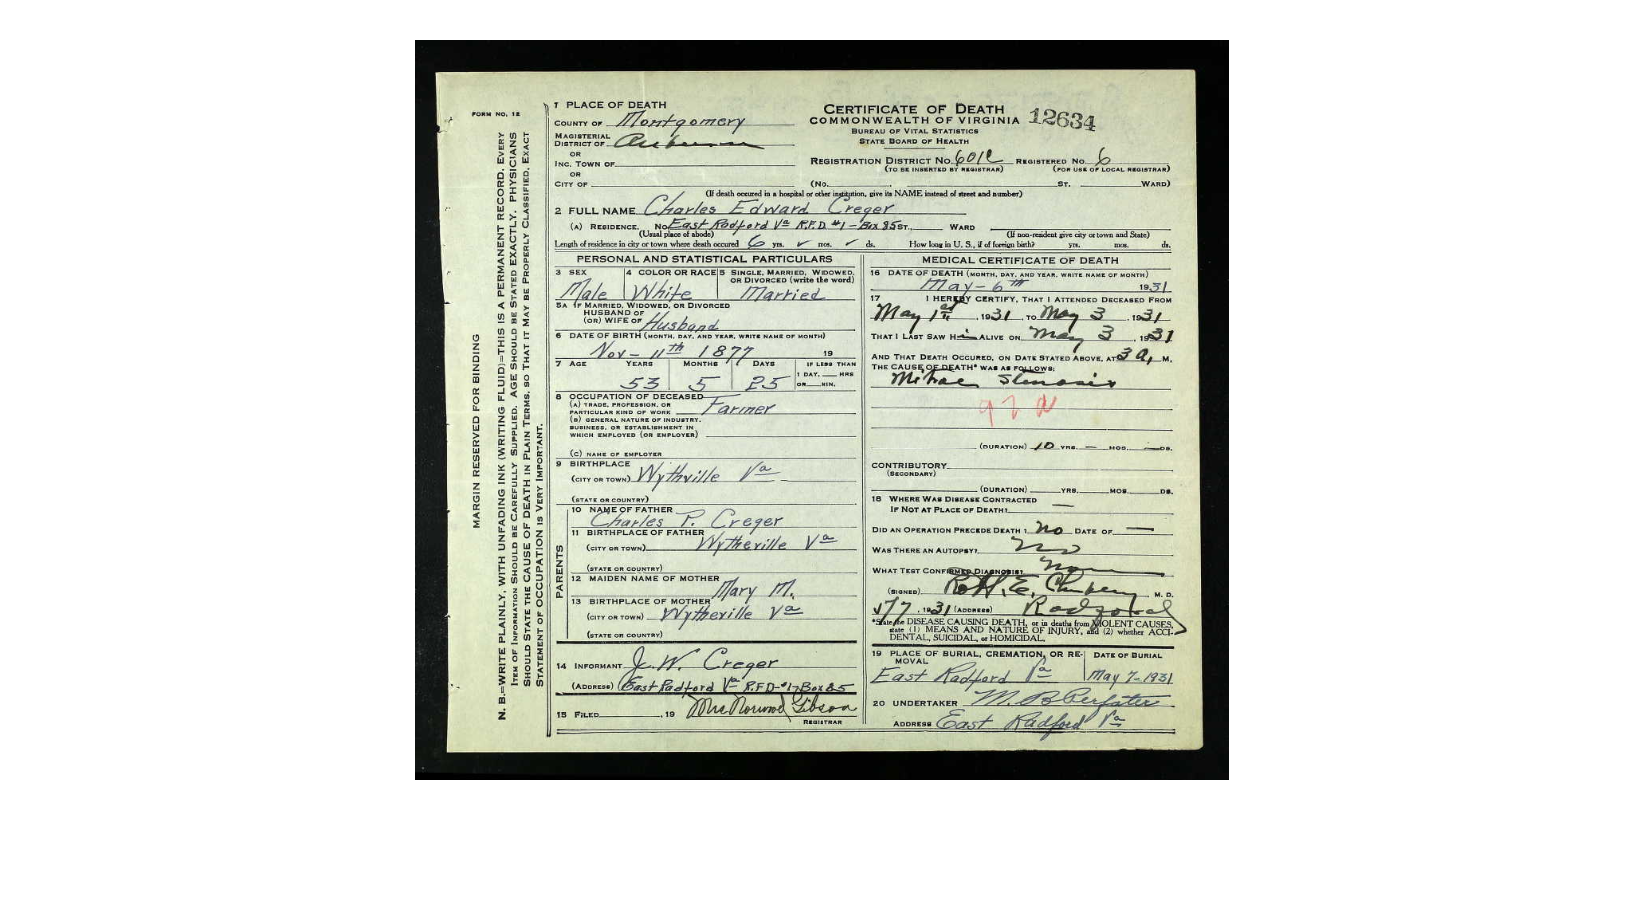 FORM NO. 12
MARGIN RESERVED FOR BINDING
N. B.=WRITE PLAINLY, WITH UNFADING INK (WRITING FLUID)=THIS IS A PERMANENT RECORD. EVERY
ITEM OF INFORMATION SHOULD BE CAREFULLY SUPPLIED. AGE SHOULD BE STATED EXACTLY. PHYSICIANS
SHOULD STATE THE CAUSE OF DEATH IN PLAIN TERMS, SO THAT IT MAY BE PROPERLY CLASSIFIED. EXACT
STATEMENT OF OCCUPATION IS VERY IMPORTANT.
1 PLACE OF DEATH
COUNTY OF Montgomery
MAGISTERIAL
DISTRICT OF Auburn
OR
INC. TOWN OF
OR
CITY OF (No. ST. WARD)
CERTIFICATE OF DEATH
COMMONWEALTH OF VIRGINIA 12634
BUREAU OF VITAL STATISTICS
STATE BOARD OF HEALTH
REGISTRATION DISTRICT NO. 601C REGISTERED NO. 6
(TO BE INSERTED BY REGISTRAR) (FOR USE OF LOCAL REGISTRAR)
(If death occured in a hospital or other institution, give its NAME instead of street and number)
2 FULL NAME Charles Edward Creger
(A) RESIDENCE. No. East Radford Va R.F.D. #1 - Box 85 ST., WARD
(Usual place of abode) (If non-resident give city or town and State)
Length of residence in city or town where death occured 6 yrs. ✓ mos. ✓ ds. How long in U. S., if of foreign birth? yrs. mos. ds.
PERSONAL AND STATISTICAL PARTICULARS
3 SEX 4 COLOR OR RACE 5 SINGLE, MARRIED, WIDOWED, OR DIVORCED (write the word)
Male White Married
5A IF MARRIED, WIDOWED, OR DIVORCED
HUSBAND OF
(OR) WIFE OF Husband
6 DATE OF BIRTH (MONTH, DAY, AND YEAR, WRITE NAME OF MONTH)
Nov - 11th 1877 19
7 AGE YEARS MONTHS DAYS IF LESS THAN
1 DAY, HRS
53 5 25 OR MIN.
8 OCCUPATION OF DECEASED
(A) TRADE, PROFESSION, OR
PARTICULAR KIND OF WORK Farmer
(B) GENERAL NATURE OF INDUSTRY,
BUSINESS, OR ESTABLISHMENT IN
WHICH EMPLOYED (OR EMPLOYER)
(C) NAME OF EMPLOYER
9 BIRTHPLACE
(CITY OR TOWN) Wythville Va
(STATE OR COUNTRY)
PARENTS
10 NAME OF FATHER
Charles P. Creger
11 BIRTHPLACE OF FATHER
(CITY OR TOWN) Wytheville Va
(STATE OR COUNTRY)
12 MAIDEN NAME OF MOTHER
Mary M.
13 BIRTHPLACE OF MOTHER
(CITY OR TOWN) Wytheville Va
(STATE OR COUNTRY)
14 INFORMANT J. W. Creger
(ADDRESS) East Radford Va R.F.D - #1 - Box 85
15 FILED , 19 Mrs Gibson
REGISTRAR
MEDICAL CERTIFICATE OF DEATH
16 DATE OF DEATH (MONTH, DAY, AND YEAR, WRITE NAME OF MONTH)
May - 6th 1931
17 I HEREBY CERTIFY, THAT I ATTENDED DECEASED FROM
May 1st, 1931, TO May 3, 1931
THAT I LAST SAW Him ALIVE ON May 3, 1931
AND THAT DEATH OCCURED, ON DATE STATED ABOVE, AT 3 a, M.
THE CAUSE OF DEATH* WAS AS FOLLOWS:
Mitral Stenosis
92 a
(DURATION) 10 YRS. — MOS. — DS.
CONTRIBUTORY
(SECONDARY)
(DURATION) YRS. MOS. DS.
18 WHERE WAS DISEASE CONTRACTED
IF NOT AT PLACE OF DEATH? —
DID AN OPERATION PRECEDE DEATH? no DATE OF —
WAS THERE AN AUTOPSY? no
WHAT TEST CONFIRMED DIAGNOSIS? none
(SIGNED) M. D.
5/7, 1931 (ADDRESS) Radford
*State the DISEASE CAUSING DEATH, or in deaths from VIOLENT CAUSES,
state (1) MEANS AND NATURE OF INJURY, and (2) whether ACCI-
DENTAL, SUICIDAL, or HOMICIDAL.
19 PLACE OF BURIAL, CREMATION, OR RE- DATE OF BURIAL
MOVAL
East Radford Va May 7-1931
20 UNDERTAKER M. B.
ADDRESS East Radford Va